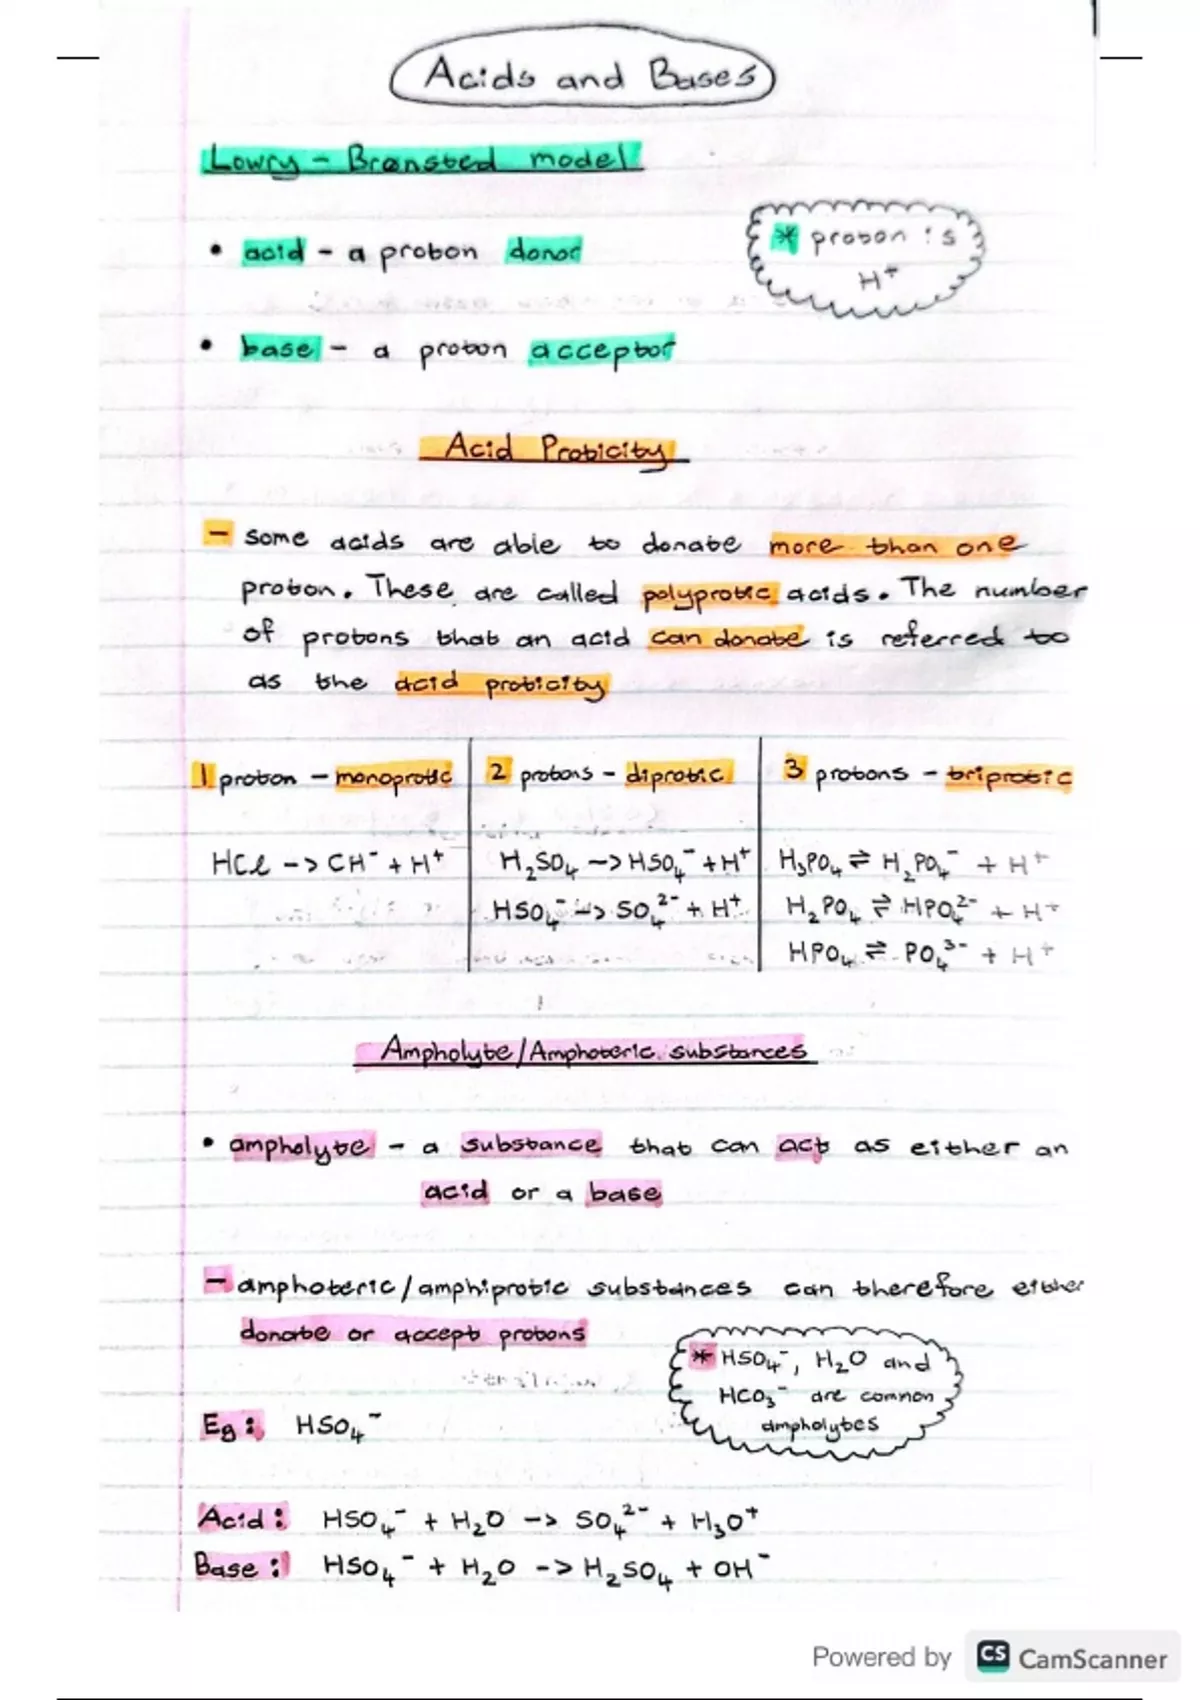 Acids and Bases
Lowry - Brønsted model
• acid - a proton donor
* proton is
H⁺
• base - a proton acceptor
Acid Proticity
- some acids are able to donate more than one
proton. These are called polyprotic acids. The number
of protons that an acid can donate is referred to
as the acid proticity
1 proton - monoprotic
2 protons - diprotic
3 protons - triprotic
HCl -> CH⁻ + H⁺
H₂SO₄ -> HSO₄⁻ + H⁺
H₃PO₄ ⇌ H₂PO₄⁻ + H⁺
HSO₄⁻ -> SO₄²⁻ + H⁺
H₂PO₄ ⇌ HPO₄²⁻ + H⁺
HPO₄ ⇌ PO₄³⁻ + H⁺
Ampholyte/Amphoteric substances
• ampholyte - a substance that can act as either an
acid or a base
- amphoteric/amphiprotic substances can therefore either
donate or accept protons
* HSO₄⁻, H₂O and
HCO₃⁻ are common
ampholytes
Eg: HSO₄⁻
Acid: HSO₄⁻ + H₂O -> SO₄²⁻ + H₃O⁺
Base: HSO₄⁻ + H₂O -> H₂SO₄ + OH⁻
Powered by CS CamScanner